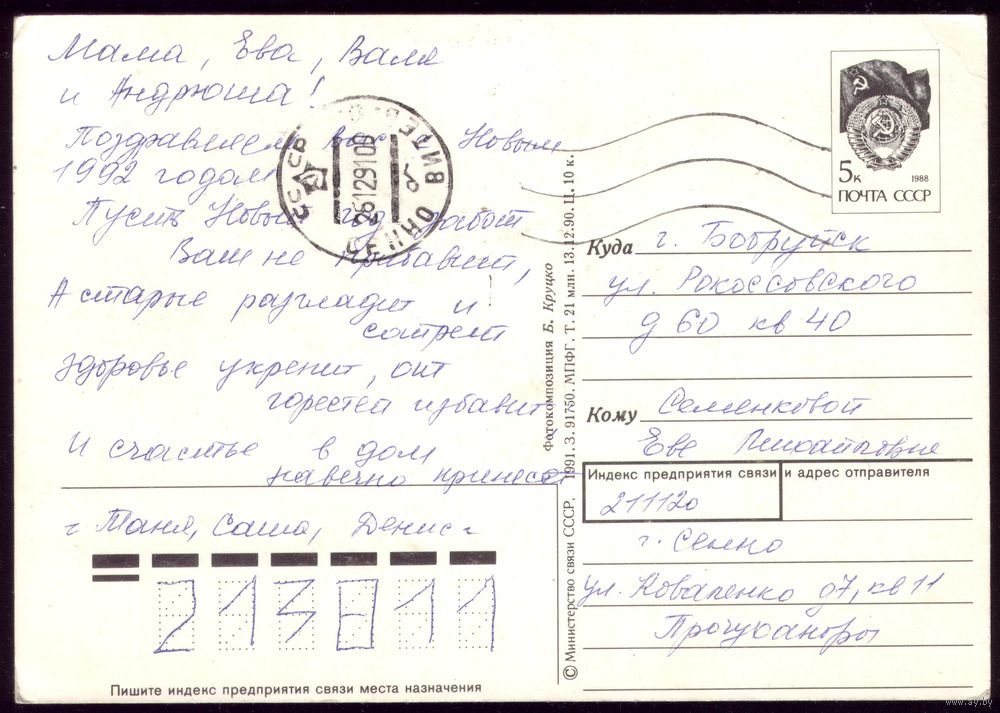 Мама, Ева, Валя
и Андрюша!
Поздравляем вас с Новым
1992 годом
Пусть Новый год забот
Вам не прибавит,
А старые разгладит и
сотрет
Здоровье укрепит, от
горестей избавит
И счастье в дом
навечно принесет
Таня, Саша, Денис
213811
Пишите индекс предприятия связи места назначения
СССР
261291 00
СЕННО ВИТЕБ. О
© Министерство связи СССР. 1991. З. 91750. МПФГ. Т. 21 млн. 13.12.90. Ц. 10 к.
Фотокомпозиция Б. Круцко
5к
1988
ПОЧТА СССР
Куда г. Бобруйск
ул. Рокоссовского
д 60 кв 40
Кому Семенковой
Еве Михайловне
Индекс предприятия связи и адрес отправителя
211120
г. Сенно
ул. Коваленко д7, кв 11
www.ay.by